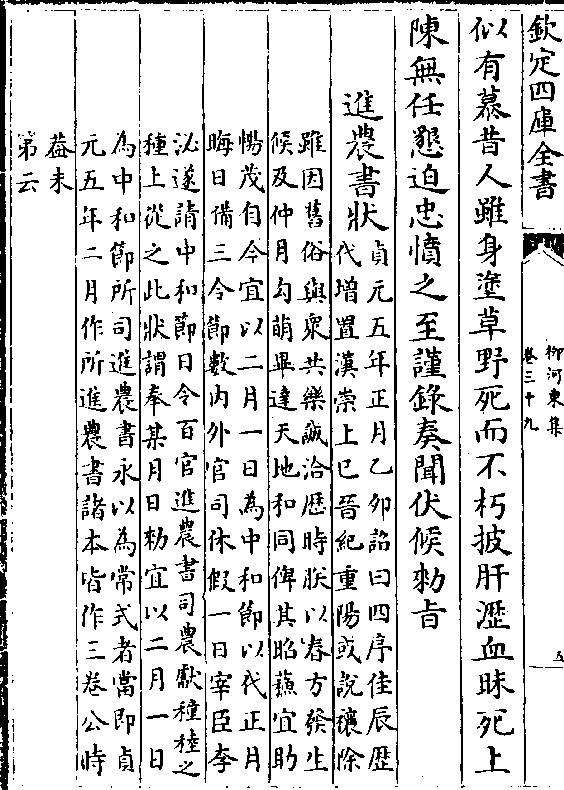 欽定四庫全書
柳河東集
卷三十九
五
似有慕昔人雖身塗草野死而不朽披肝瀝血昧死上
陳無任懇迫忠憤之至謹錄奏聞伏候勅旨
進農書狀
貞元五年正月乙卯詔曰四序佳辰歴
代增置漢崇上巳晉紀重陽或說禳除
雖因舊俗與衆共樂誠洽歴時朕以春方發生
候及仲月勾萌畢達天地和同俾其昭蘇宜助
暢茂自今宜以二月一日為中和節以代正月
晦日備三令節數内外官司休假一日宰臣李
泌遂請中和節日令百官進農書司農獻種稑之
種上從之此狀謂奉某月日勅宜以二月一日
為中和節所司進農書永以為常式者當即貞
元五年二月作所進農書諸本皆作三卷公時
葢未
第云